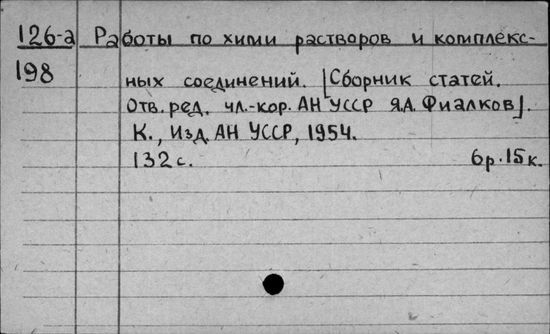 126-а Работы по химии растворов и комплекс-
198
ных соединений. [Сборник статей.
Отв. ред. чл.-кор. АН УССР Я.А. Фиалков].
К., Изд. АН УССР, 1954.
132 с. 6р. 15к.